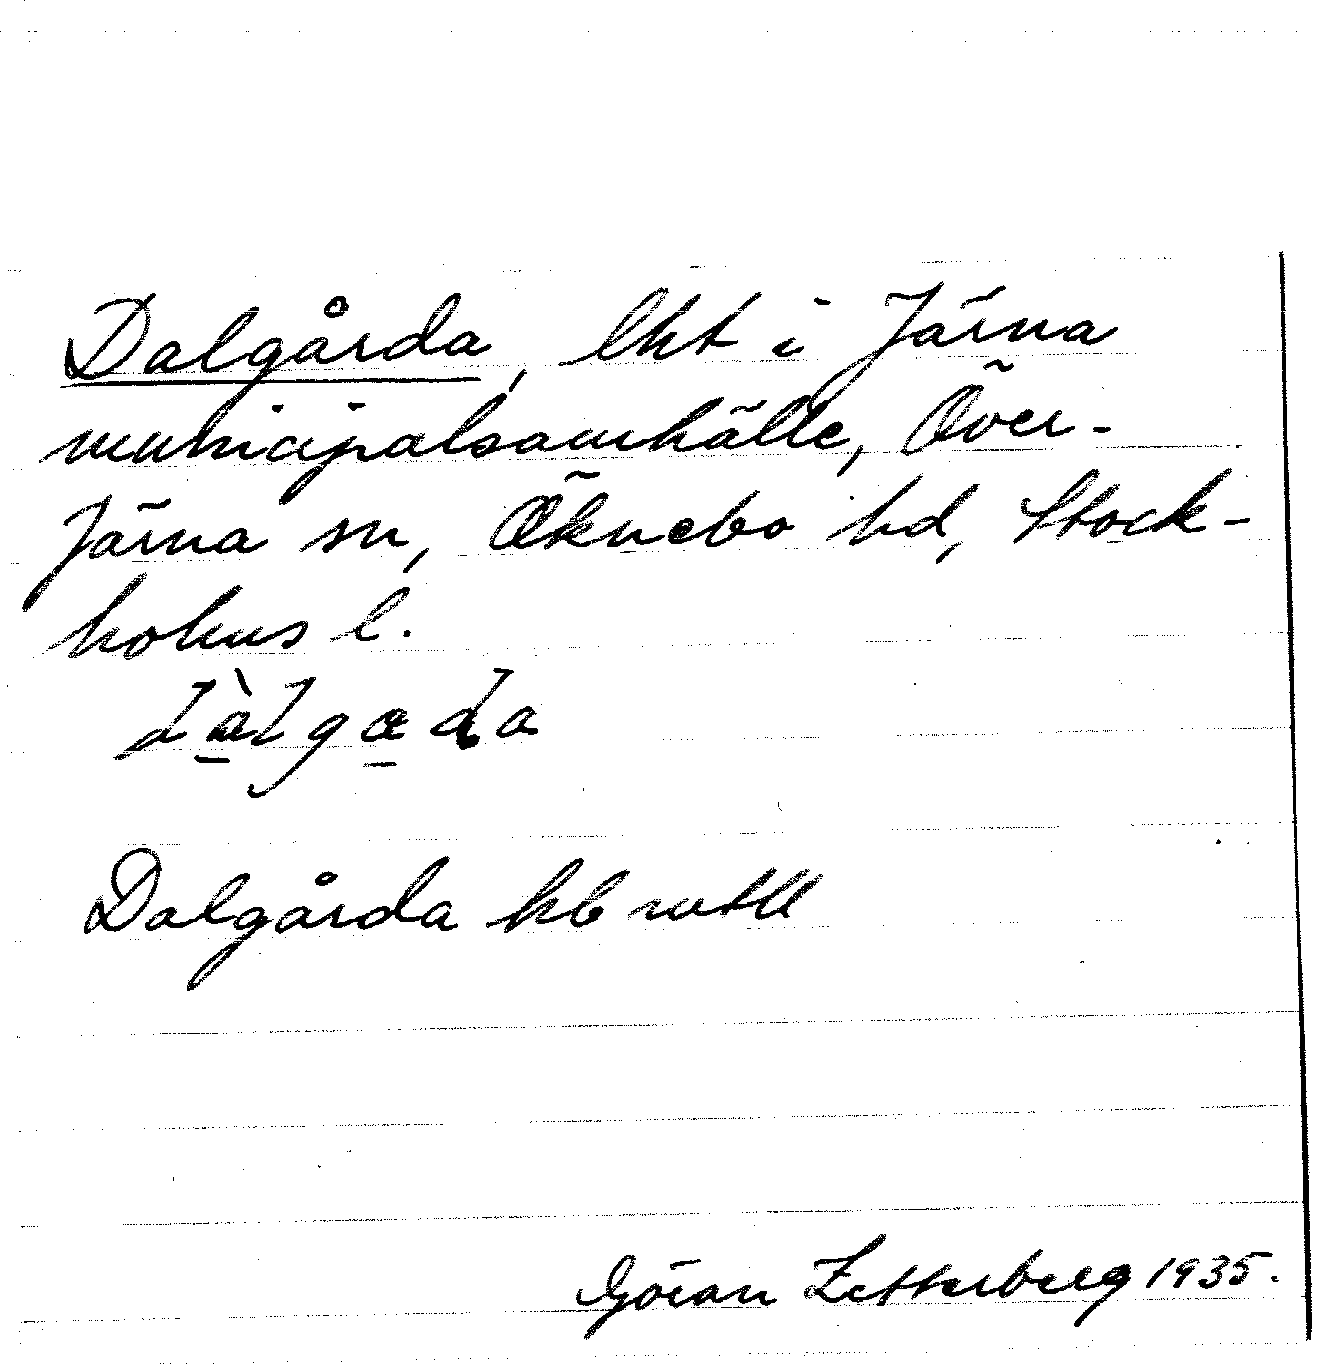 Dalgårda, lht i Järna
municipalsamhälle, Över-
Järna sn, Öknebo hd, Stock-
holms l.
Dalgårda kb
Göran Zetterberg 1935.